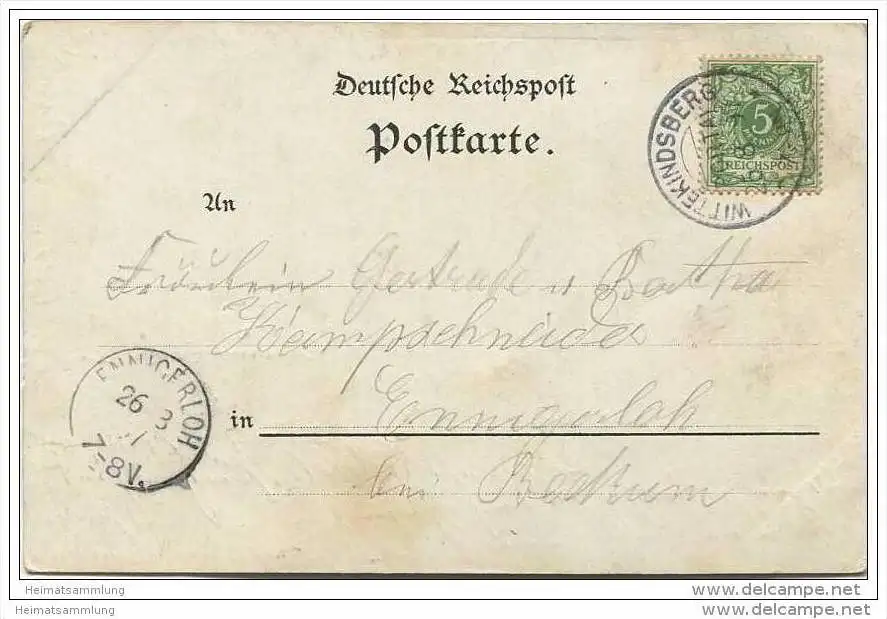 Deutsche Reichspost
Postkarte.
WITTEKINDSBERG
5
REICHSPOST
An
Fräulein Gertrude u Bertha
Kampschneider
in Ennigerloh
bei Beckum
ENNIGERLOH
26 3
7-8V.
Heimatsammlung
Heimatsammlung
www.delcampe.net
www.delcampe.net